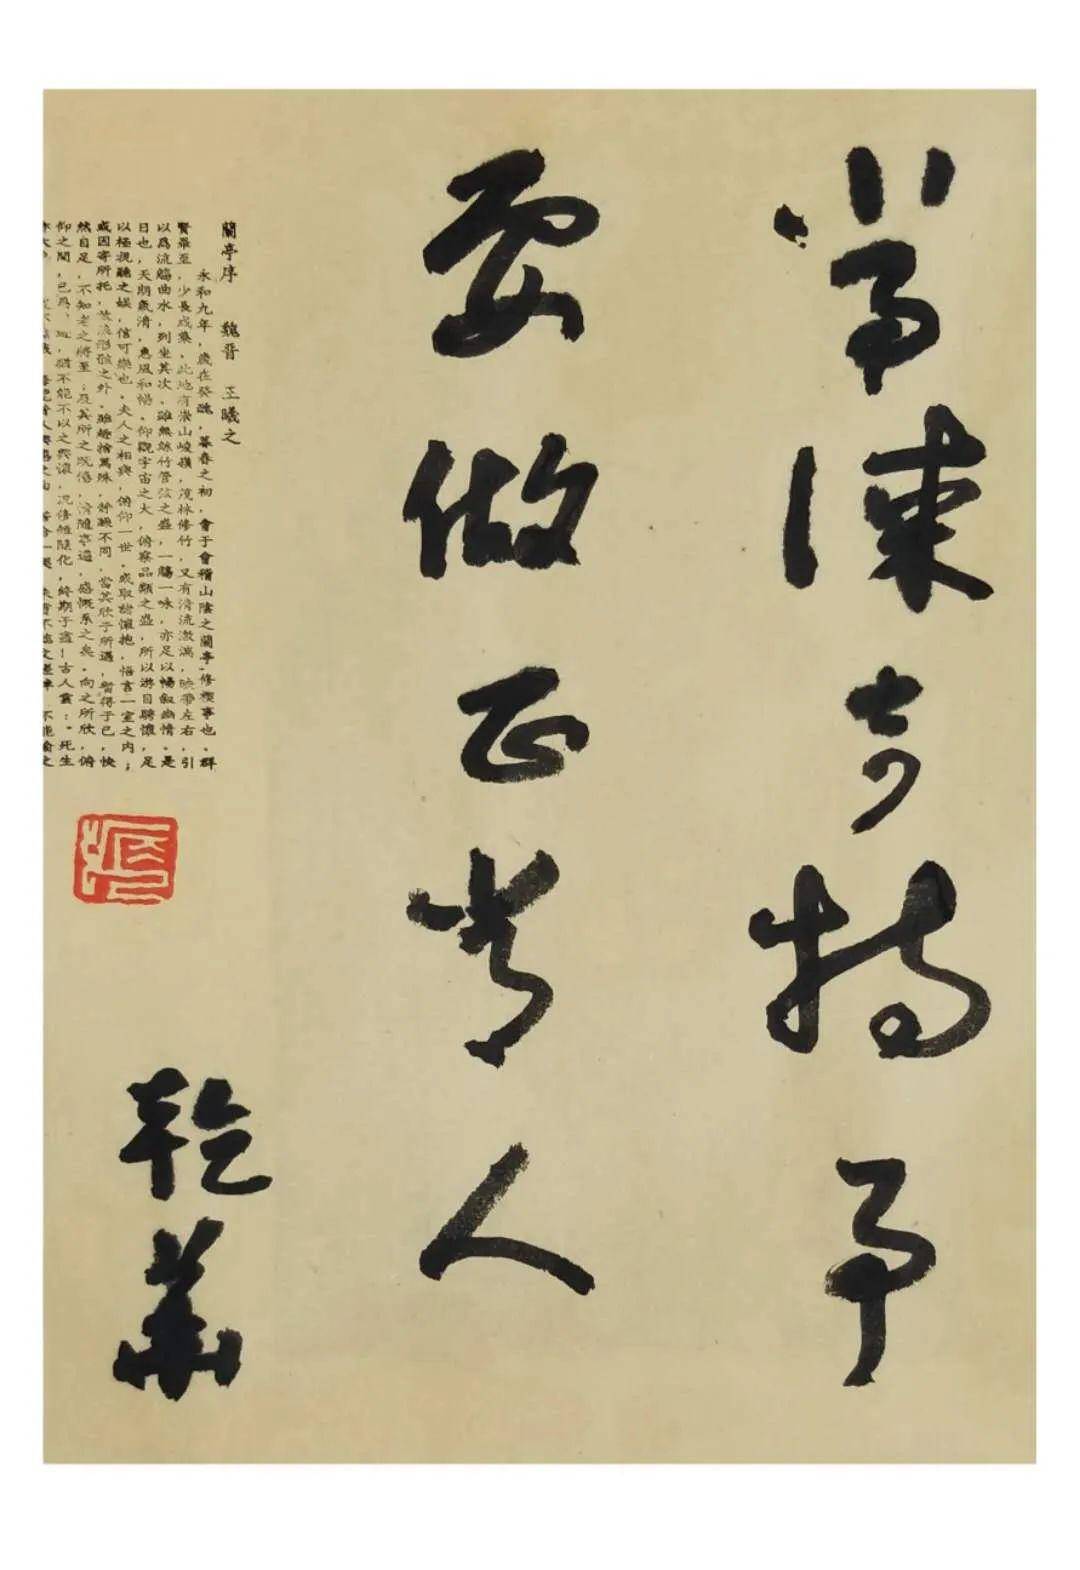 常 奇特事
要做正常人
蘭亭序 魏晋 王曦之
永和九年，歲在癸醜，暮春之初，會于會稽山陰之蘭亭，修禊事也。群
賢畢至，少長咸集，此地有崇山峻嶺，茂林修竹，又有清流激湍，映帶左右，引
以爲流觴曲水，列坐其次，雖無絲竹管弦之盛，一觴一咏，亦足以暢叙幽情。是
日也，天朗氣清，惠風和暢。仰觀宇宙之大，俯察品類之盛，所以游目騁懷，足
以極視聽之娱，信可樂也。夫人之相與，俯仰一世，或取諸懷抱，悟言一室之内；
或因寄所托，放浪形骸之外。雖趣捨萬殊，静躁不同，當其欣于所遇，暫得于己，快
然自足，不知老之將至；及其所之既倦，情隨事遷，感慨系之矣。向之所欣，俯
仰之間，已爲 迹，猶不能不以之興懷，况修短隨化，終期于盡！古人雲："死生
乾華